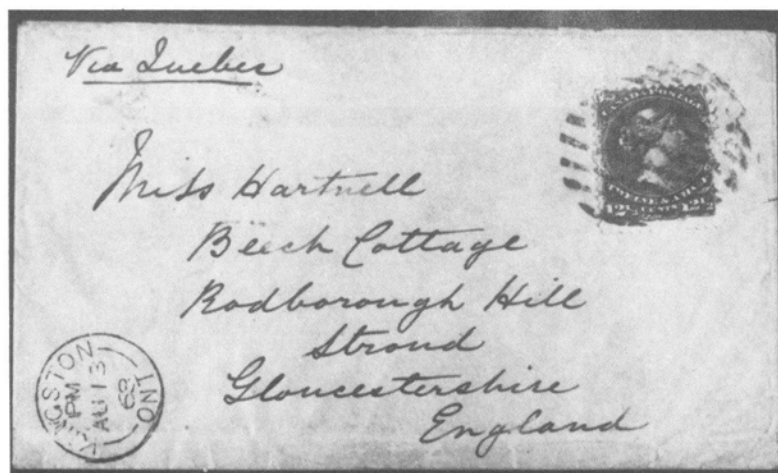 Via Quebec
Miss Hartnell
Beech Cottage
Rodborough Hill
Stroud
Gloucestershire
England
KINGSTON
PM
AU 13
68
ONT